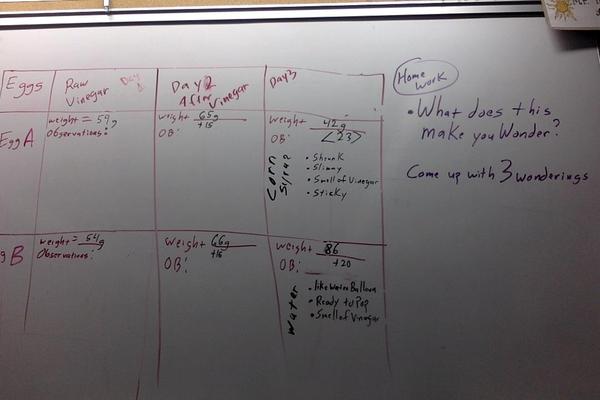 Eggs
Raw Vinegar Day 1
Day 2
After Vinegar
Day 3
Home
Work
• What does this
make you Wonder?
Come up with 3 wonderings
Egg A
Observations:
Weight 65g
OB:
Weight 42g
OB: <23>
Corn Syrup
• Shrunk
• Slimy
• Smell of Vinegar
• Sticky
B
weight = 54g
Observations:
Weight 66g
OB:
Weight 86
OB: +20
Water
• like Water Balloon
• Ready to Pop
• Smell of Vinegar